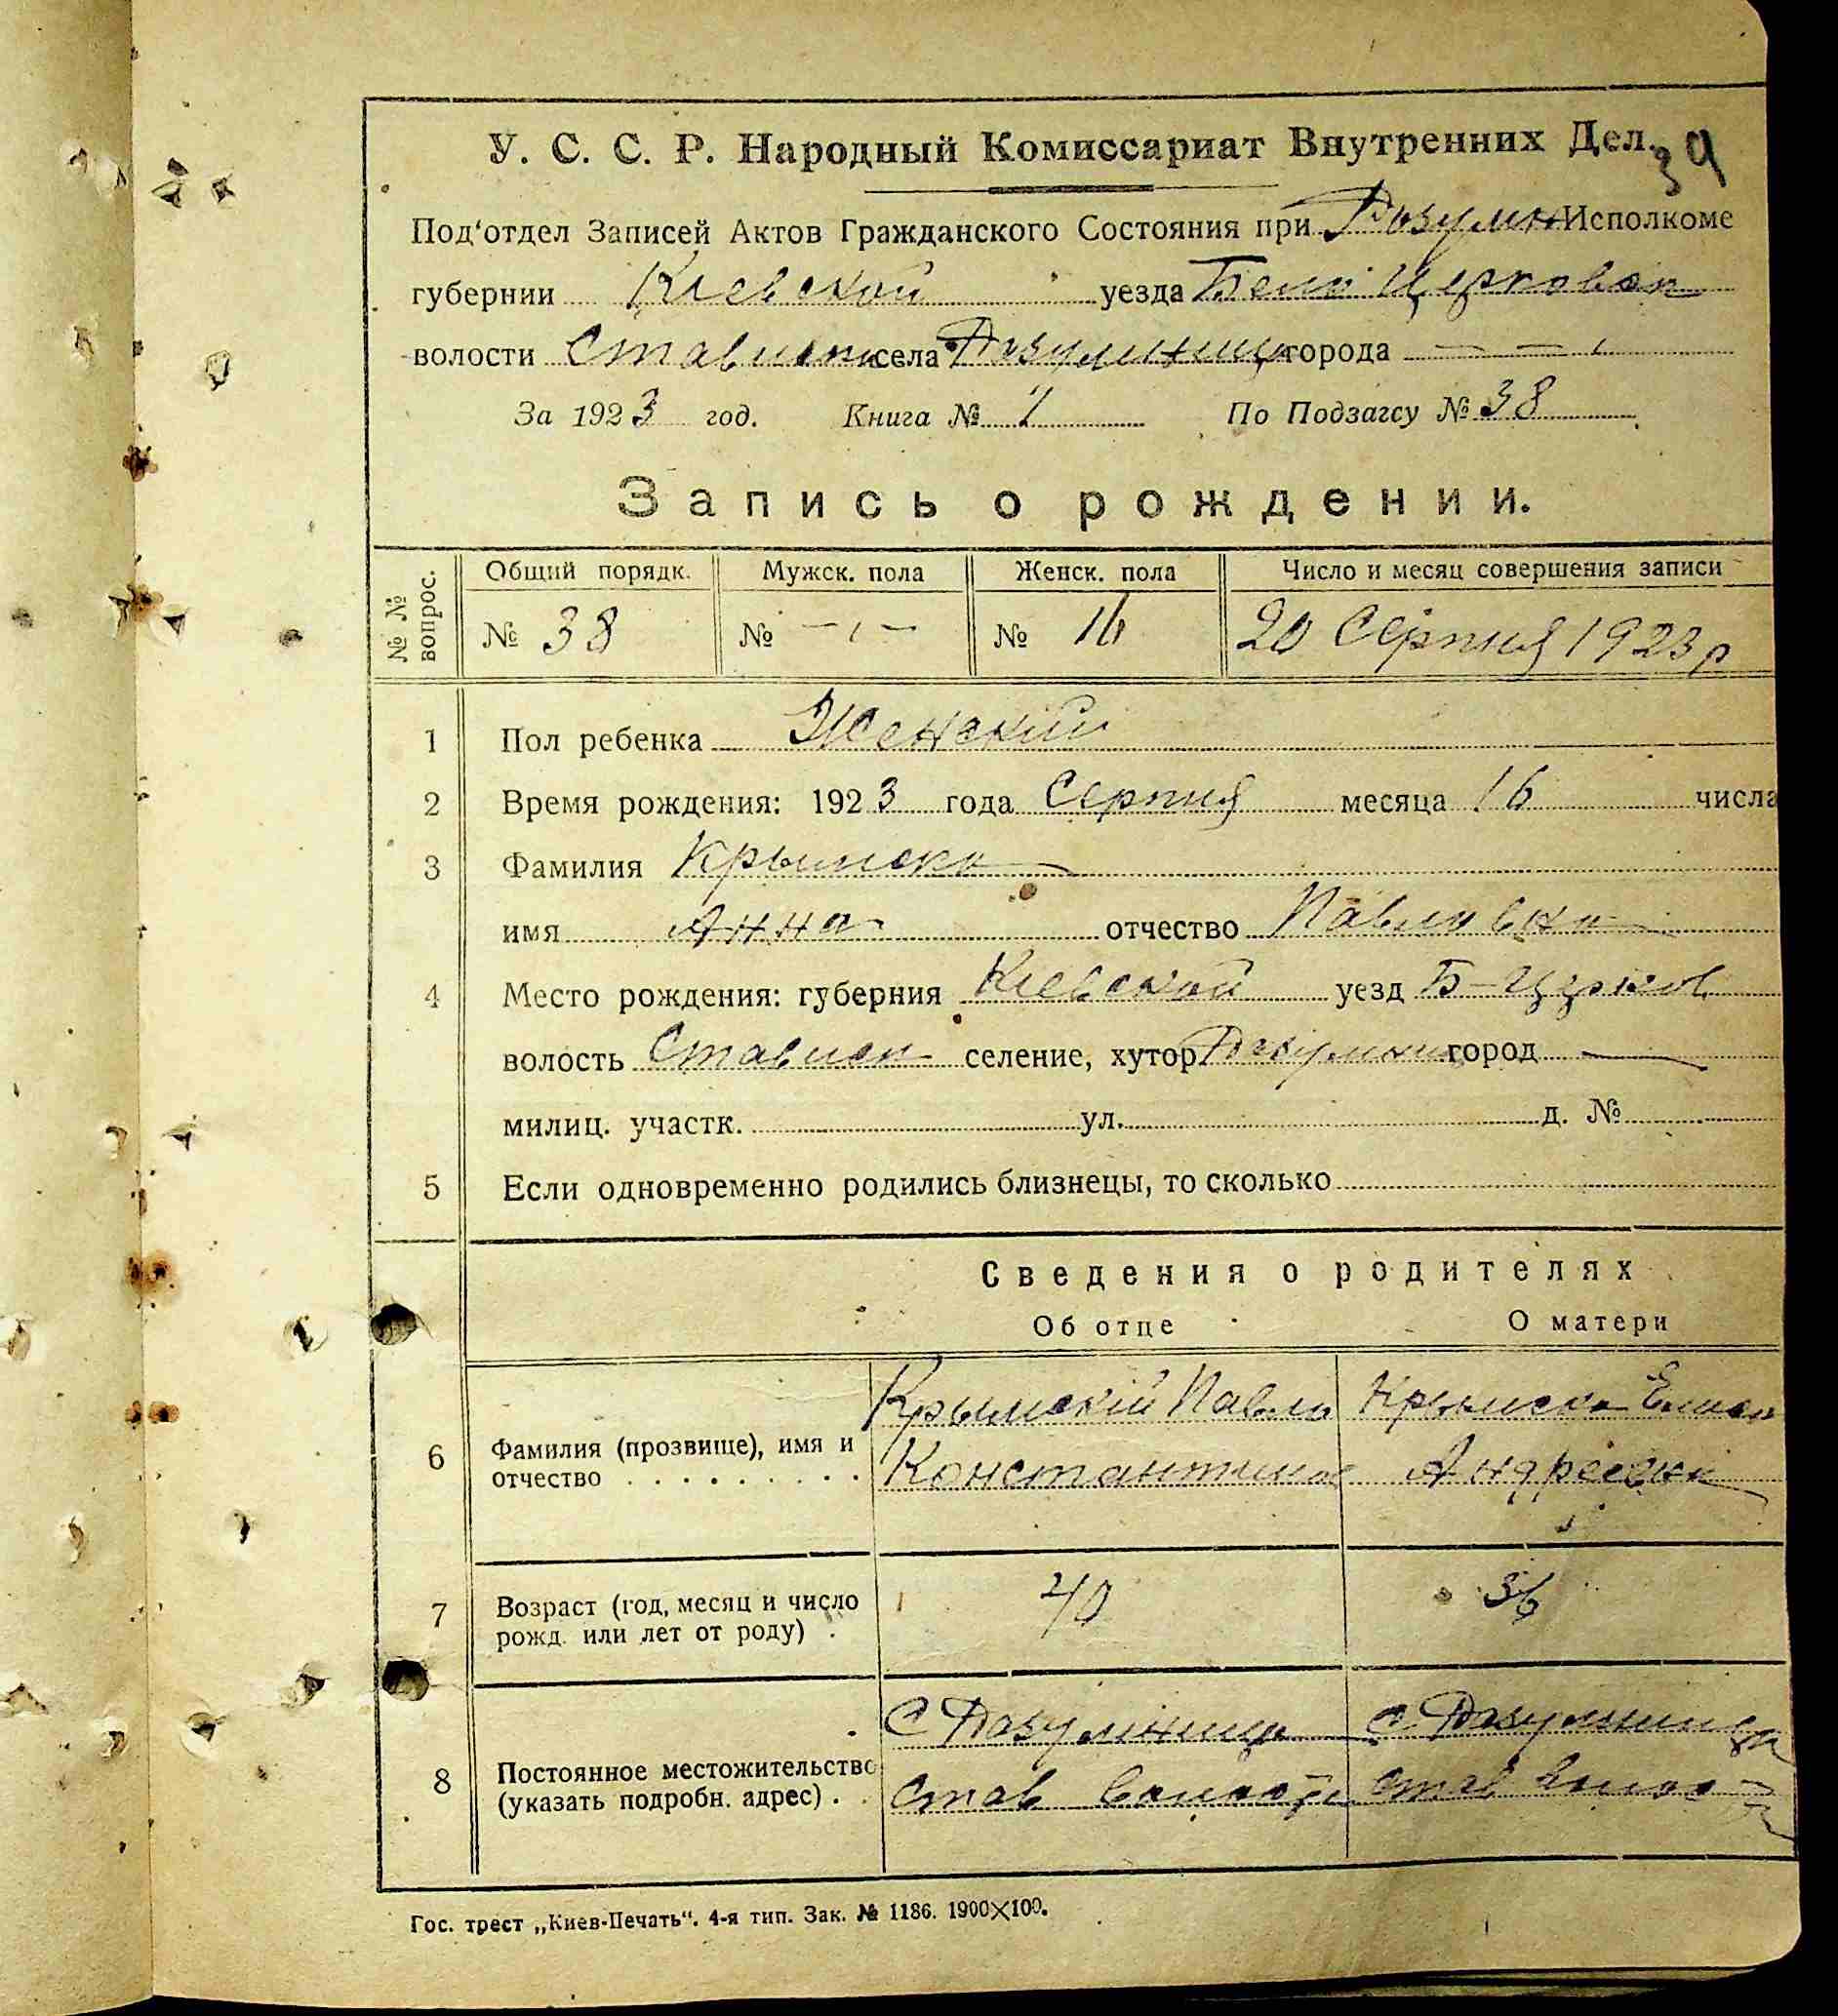 39
У. С. С. Р. Народный Комиссариат Внутренних Дел.
Под'отдел Записей Актов Гражданского Состояния при Розумн Исполкоме
губернии Киевской уезда Бело Церковск
волости Стависки села города — —
За 1923 год. Книга № 1 По Подзагсу № 38
Запись о рождении.
№ № вопрос. Общий порядк. Мужск. пола Женск. пола Число и месяц совершения записи
№ 38 № — № 16 20 Серпня 1923 р
1 Пол ребенка Женский
2 Время рождения: 1923 года Серпня месяца 16 числа
3 Фамилия Крымска
имя Анна отчество Павловна
4 Место рождения: губерния Киевской уезд Б-Церков
волость Стависк селение, хутор город —
милиц. участк. ул. д. №
5 Если одновременно родились близнецы, то сколько
Сведения о родителях
Об отце О матери
Крымский Павло Крымска
6 Фамилия (прозвище), имя и отчество Константинов Андреевна
7 Возраст (год, месяц и число рожд. или лет от роду) 40 36
8 Постоянное местожительство (указать подробн. адрес) С с
Став волости став волости
Гос. трест „Киев-Печать“. 4-я тип. Зак. № 1186. 1900×100.